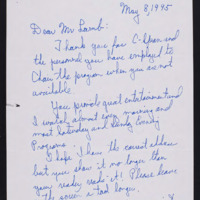 May 8, 1995
Dear Mr Lamb:
Thank you for C-Span and
the personnel you have employed to
Chair the program when you are not
available.
You provide great entertainment and
I watch almost every morning and
most Saturday and Sunday Evening
Programs.
I hope I have the correct address
but you show it no longer than
your ready reads it! Please leave
the screen a tad longer.